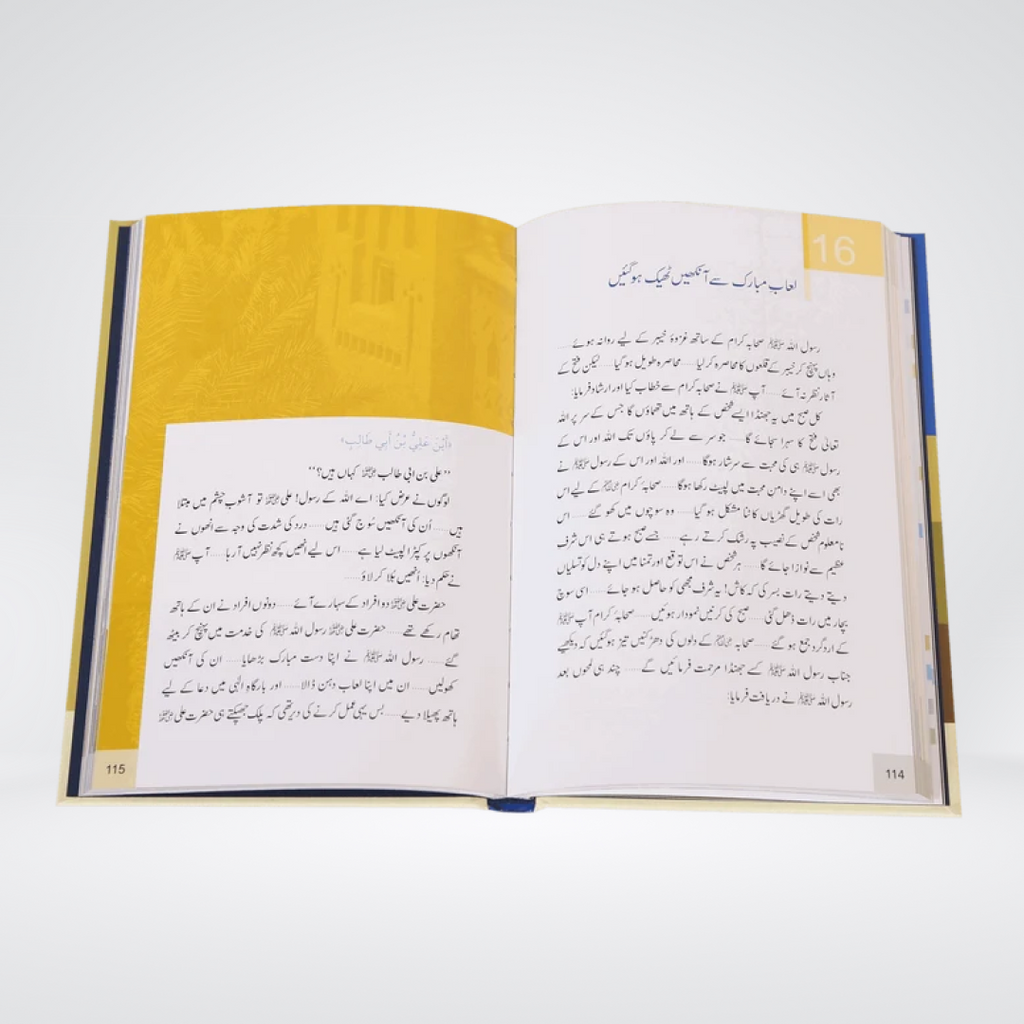 16
لعاب مبارک سے آنکھیں ٹھیک ہوگئیں
رسول اللہ ﷺ صحابہ کرام کے ساتھ غزوۂ خیبر کے لیے روانہ ہوئے......
وہاں پہنچ کر خیبر کے قلعوں کا محاصرہ کر لیا...... محاصرہ طویل ہو گیا...... لیکن فتح کے
آثار نظر نہ آئے...... آپ ﷺ نے صحابہ کرام سے خطاب کیا اور ارشاد فرمایا:
کل صبح میں یہ جھنڈا ایسے شخص کے ہاتھ میں تھماؤں گا جس کے سر پر اللہ
تعالیٰ فتح کا سہرا سجائے گا...... جو سر سے لے کر پاؤں تک اللہ اور اس کے
رسول ﷺ ہی کی محبت سے سرشار ہوگا...... اور اللہ اور اس کے رسول ﷺ نے
بھی اسے اپنے دامن محبت میں لپیٹ رکھا ہوگا...... صحابۂ کرام رضی اللہ عنہم کے لیے اس
رات کی طویل گھڑیاں کاٹنا مشکل ہو گیا...... وہ سوچوں میں کھو گئے...... اس
نامعلوم شخص کے نصیب پہ رشک کرتے رہے...... جسے صبح ہوتے ہی اس شرف
عظیم سے نوازا جائے گا...... ہر شخص نے اس توقع اور تمنا میں اپنے دل کو تسلیاں
دیتے دیتے رات بسر کی کہ کاش! یہ شرف مجھی کو حاصل ہو جائے...... اسی سوچ
بچار میں رات ڈھل گئی...... صبح کی کرنیں نمودار ہوئیں...... صحابۂ کرام آپ ﷺ
کے اردگرد جمع ہو گئے...... صحابہ رضی اللہ عنہم کے دلوں کی دھڑکنیں تیز ہوگئیں کہ دیکھیے
جناب رسول اللہ ﷺ کسے جھنڈا مرحمت فرمائیں گے...... چند ہی لمحوں بعد
رسول اللہ ﷺ نے دریافت فرمایا:
114
«أَيْنَ عَلِيُّ بْنُ أَبِي طَالِبٍ»
”علی بن ابی طالب رضی اللہ عنہ کہاں ہیں؟“
لوگوں نے عرض کیا: اے اللہ کے رسول! علی رضی اللہ عنہ تو آشوب چشم میں مبتلا
ہیں...... اُن کی آنکھیں سُوج گئی ہیں...... درد کی شدت کی وجہ سے انھوں نے
آنکھوں پر کپڑا لپیٹ لیا ہے...... اس لیے انھیں کچھ نظر نہیں آ رہا...... آپ ﷺ
نے حکم دیا: اُنھیں بُلا کر لاؤ......
حضرت علی رضی اللہ عنہ دو افراد کے سہارے آئے...... دونوں افراد نے ان کے ہاتھ
تھام رکھے تھے...... حضرت علی رضی اللہ عنہ رسول اللہ ﷺ کی خدمت میں پہنچ کر بیٹھ
گئے...... رسول اللہ ﷺ نے اپنا دست مبارک بڑھایا...... ان کی آنکھیں
کھولیں...... ان میں اپنا لعاب دہن ڈالا...... اور بارگاہِ الٰہی میں دعا کے لیے
ہاتھ پھیلا دیے...... بس یہی عمل کرنے کی دیر تھی کہ پلک جھپکتے ہی حضرت علی رضی اللہ عنہ
115